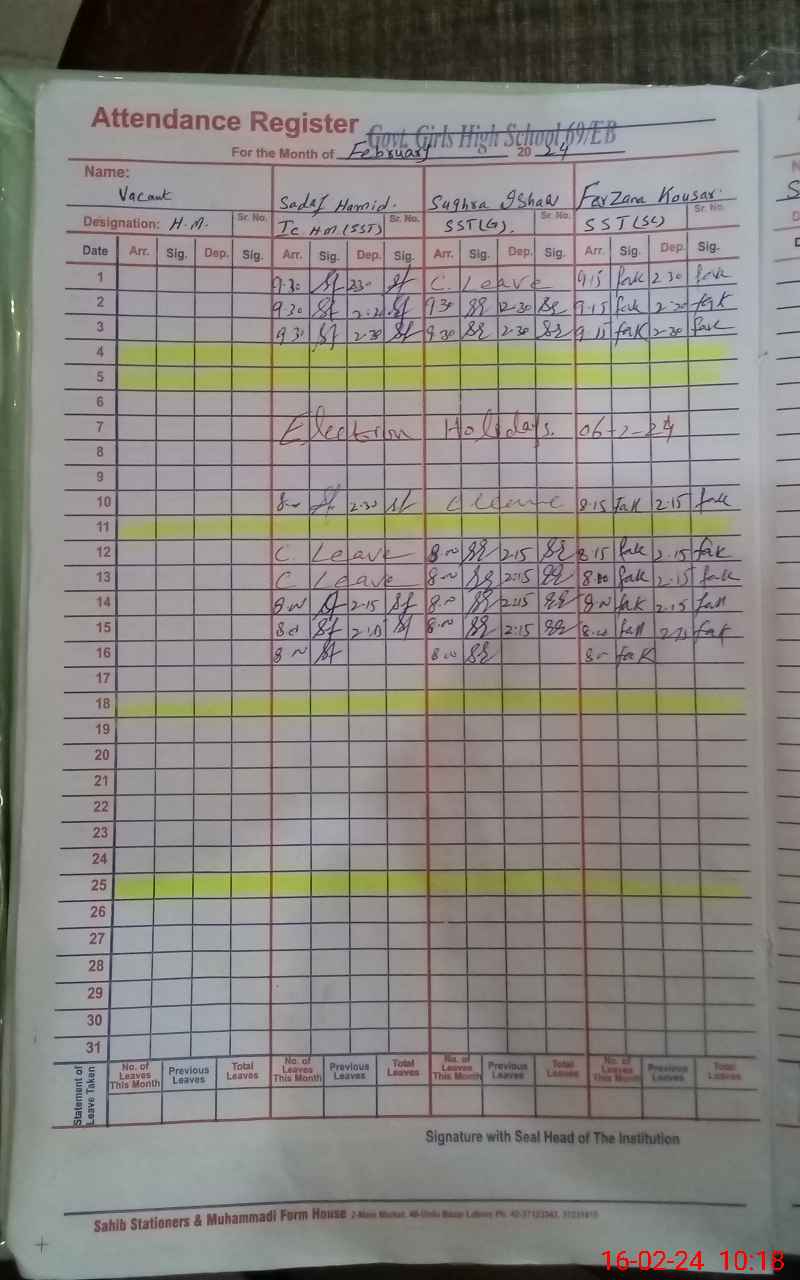 Attendance Register Govt. Girls High School 69/EB
For the Month of February 20 24
Name:
Vacant Sadaf Hamid. Sughra Ishaq Farzana Kousar.
Designation: H.M. Sr. No. Ic HM (SST) Sr. No. SST(G). Sr. No. SST(SC) Sr. No.
Date Arr. Sig. Dep. Sig. Arr. Sig. Dep. Sig. Arr. Sig. Dep. Sig. Arr. Sig. Dep. Sig.
1 9.30 Sf 2.30 Sf C. Leave 9.15 fak 2.30 fak
2 9.30 Sf Sf 9.30 SR 12.30 SR 9.15 fak fak
3 9.30 Sf 2.30 Sf 9.30 SR 2.30 SR 9.15 fak 2.30 fak
4
5
6
7 Election Holidays. 06-2-24
8
9
10 Sf 2.30 Sf C Leave 8.15 fak 2.15 fak
11
12 C. Leave 8.00 SR 2.15 SR 8.15 fak 2.15 fak
13 C Leave 8.00 SR 2:15 SR 8.00 fak 2.15 fak
14 8.00 Sf 2.15 Sf 8.00 SR 2:15 SR 8.00 fak 2.15 fak
15 Sf Sf 8.00 SR 2:15 SR 8.00 fak fak
16 8.00 Sf 8.00 SR fak
17
18
19
20
21
22
23
24
25
26
27
28
29
30
31
Statement of Leave Taken
No. of Leaves This Month Previous Leaves Total Leaves No. of Leaves This Month Previous Leaves Total Leaves No. of Leaves This Month Previous Leaves Total Leaves No. of Leaves This Month Previous Leaves Total Leaves
Signature with Seal Head of The Institution
Sahib Stationers & Muhammadi Form House
16-02-24 10:18